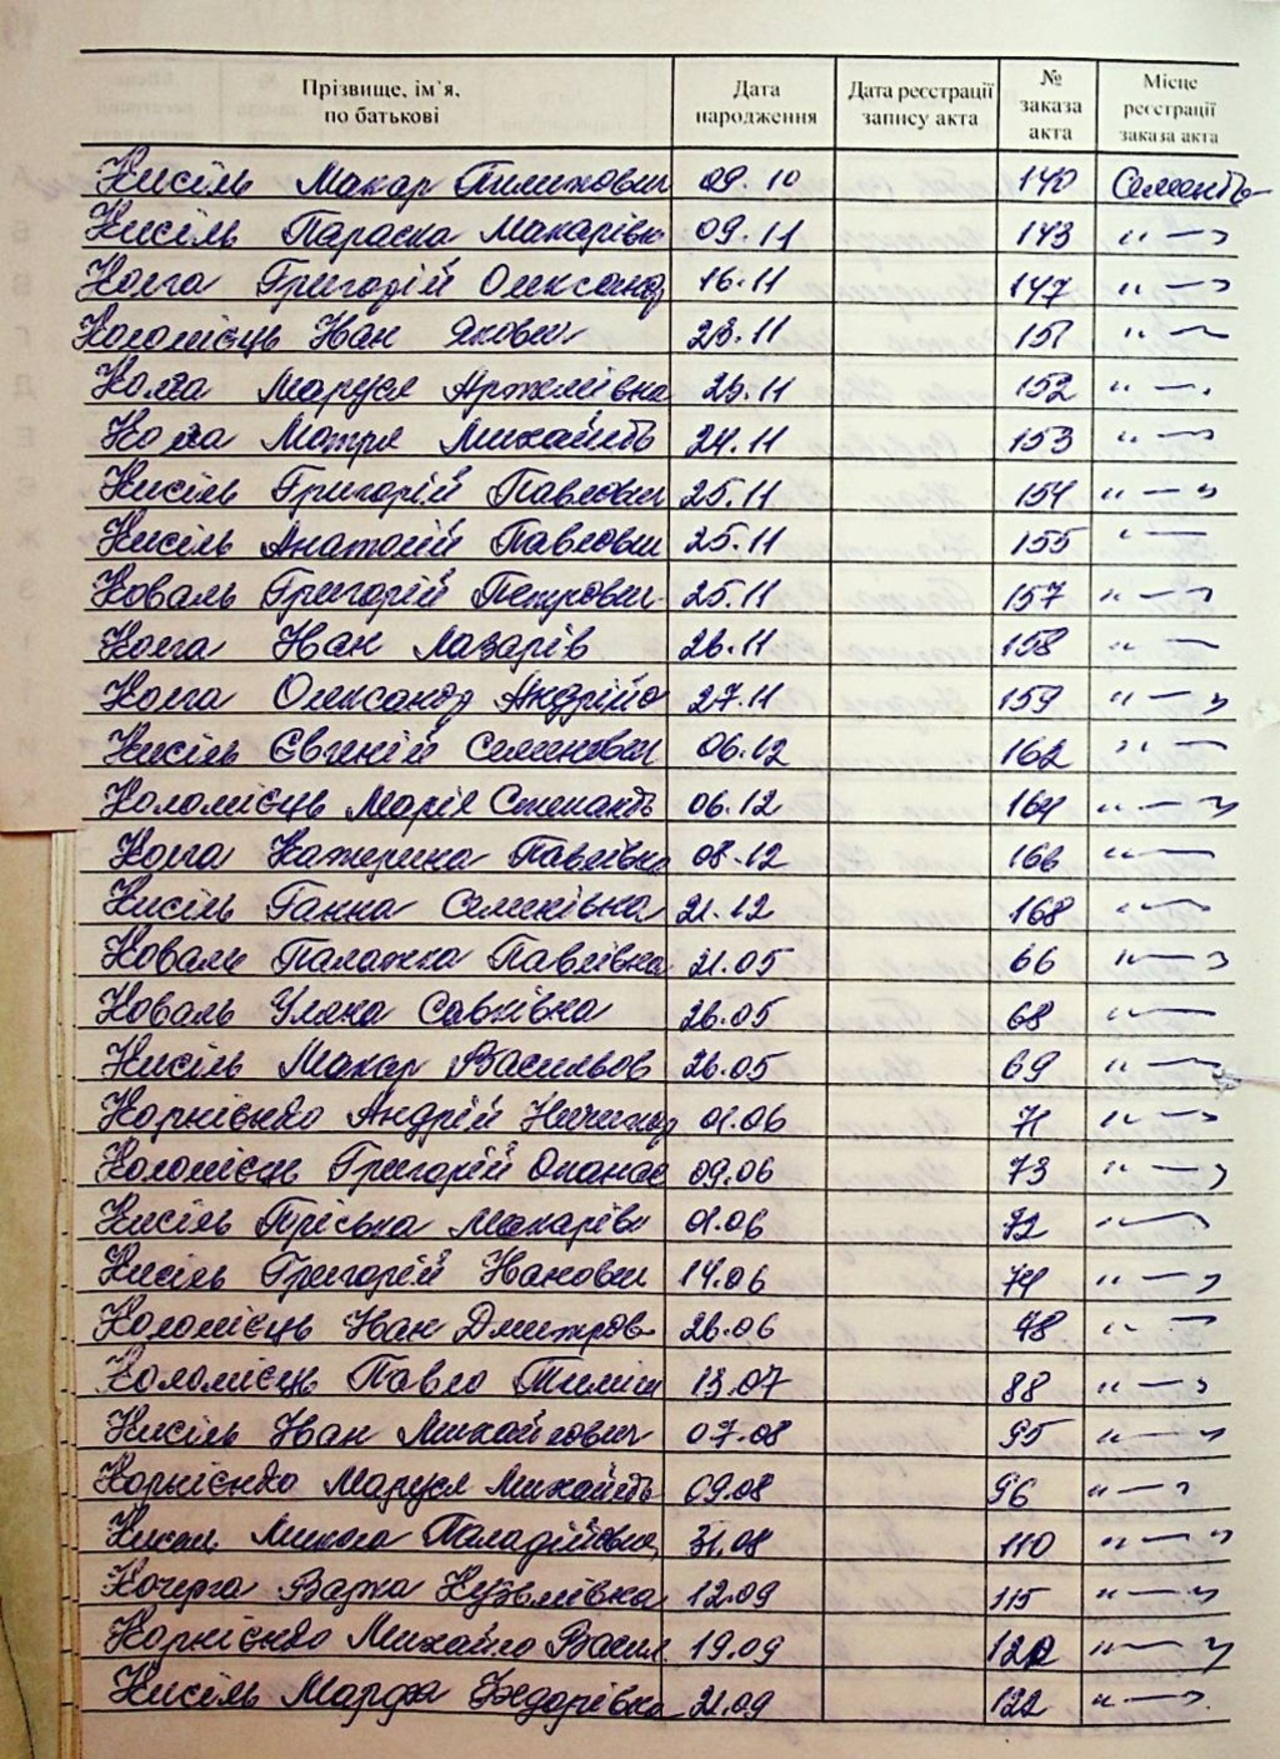 Прізвище, ім'я, по батькові Дата народження Дата реєстрації запису акта № заказа акта Місце реєстрації заказа акта
Кисіль Макар Пилипович 09.10 140
Кисіль Параска Макарівн 09.11 143 " — "
Колга Григорій Олександ 16.11 147 " — "
Коломієць Іван Якович 23.11 151 " — "
Колга Маруся Артемівна 23.11 152 " — "
Колга Мотря Михайлів 24.11 153 " — "
Кисіль Григорій Павлович 25.11 154 " — "
Кисіль Анатолій Павлович 25.11 155 " —
Коваль Григорій Петрович 25.11 157 " — "
Колга Іван Лазарів 26.11 158 " —
Колга Олександр Андрійо 27.11 159 " — "
Кисіль Євгеній Семенович 06.12 162 " —
Коломієць Марія Степанів 06.12 164 " — "
Колга Катерина Павлівна 08.12 166 " —
Кисіль Ганна Семенівна 21.12 168 " —
Коваль Палажка Павлівна 21.05 66 " — "
Коваль Уляна Савківна 26.05 68 " —
Кисіль Макар Васильов 26.05 69 " —
Корнієнко Андрій Ничипор 01.06 71 " — "
Коломієць Григорій Опанас 09.06 73 " — "
Кисіль Пріська Макарівн 01.06 72 " —
Кисіль Григорій Іванович 14.06 74 " — "
Коломієць Іван Дмитров 26.06 78 " —
Коломієць Павло Тиміш 13.07 88 " — "
Кисіль Іван Михайлович 07.08 95 " — "
Корнієнко Маруся Михайлів 09.08 96 " — "
Кисіль Микола Паладійович 31.08 110 " — "
Кочерга Варка Кузьмівна 12.09 115 " — "
Корнієнко Михайло Васил. 19.09 120 " — "
Кисіль Марфа Федорівна 21.09 122 " — "